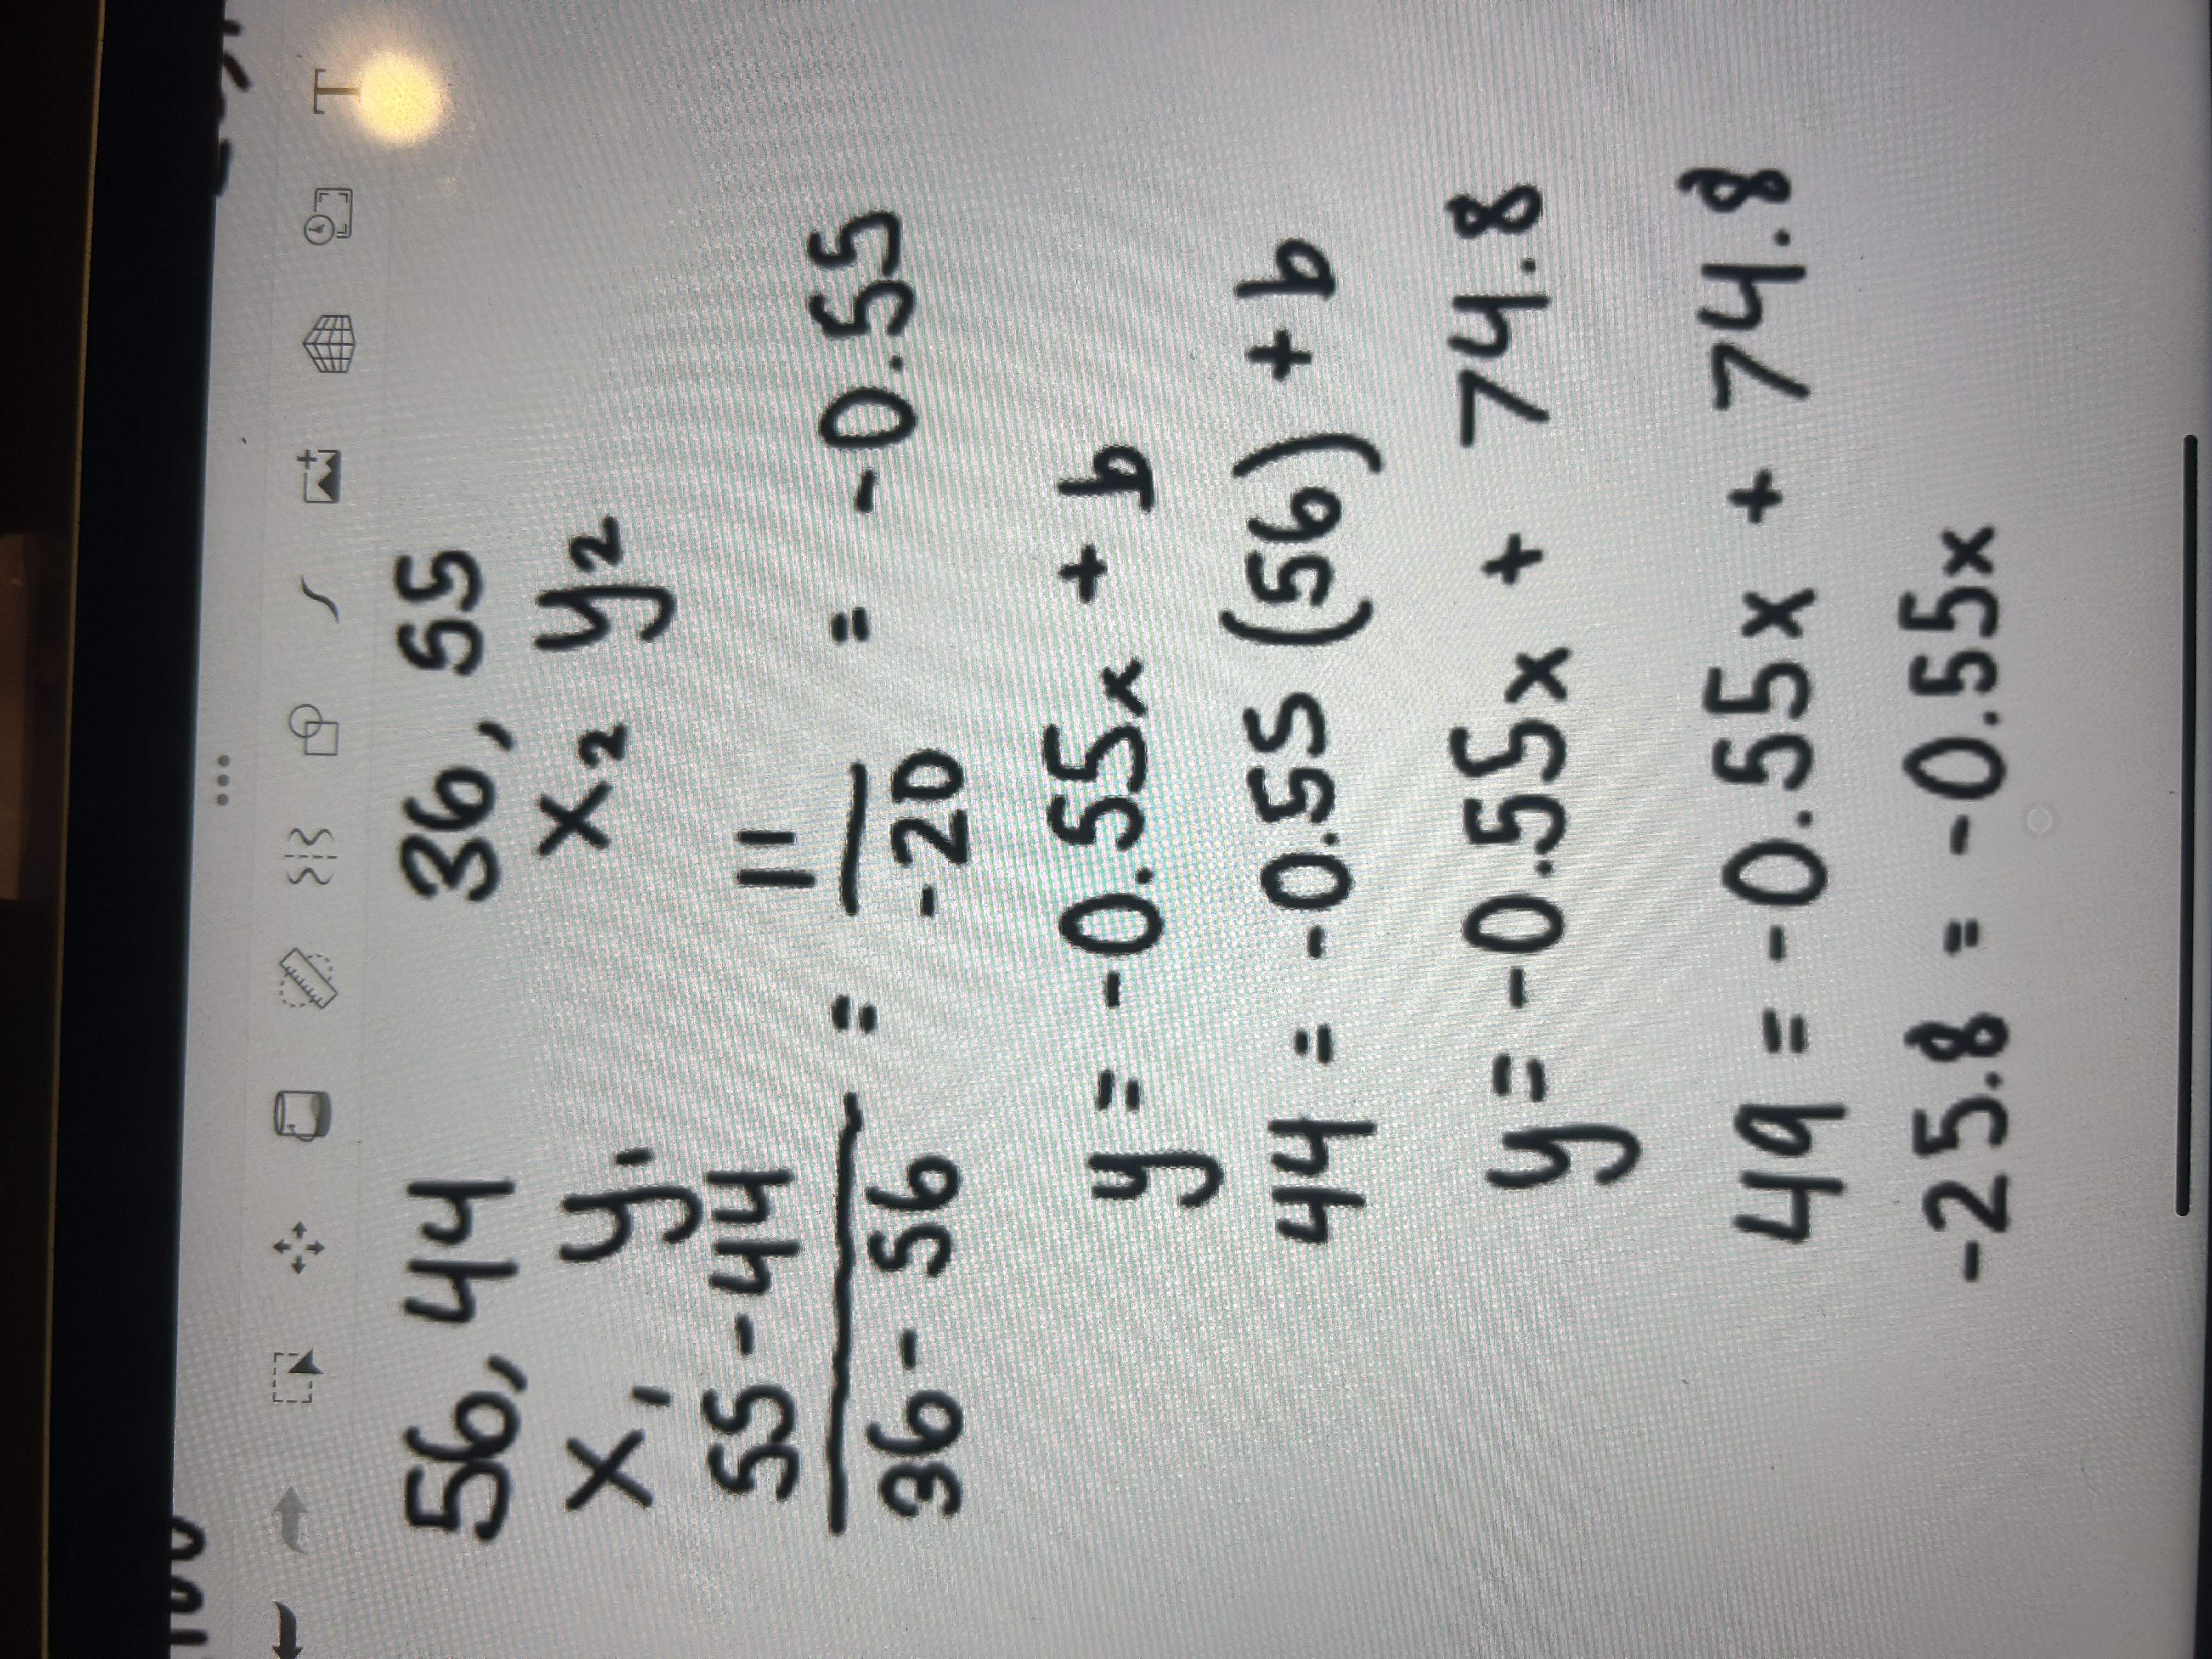 56, 44 36, 55
x₁ y₁ x₂ y₂
55-44
36-56 = 11
-20 = -0.55
y = -0.55x + b
44 = -0.55 (56) + b
y = -0.55x + 74.8
49 = -0.55x + 74.8
-25.8 = -0.55x